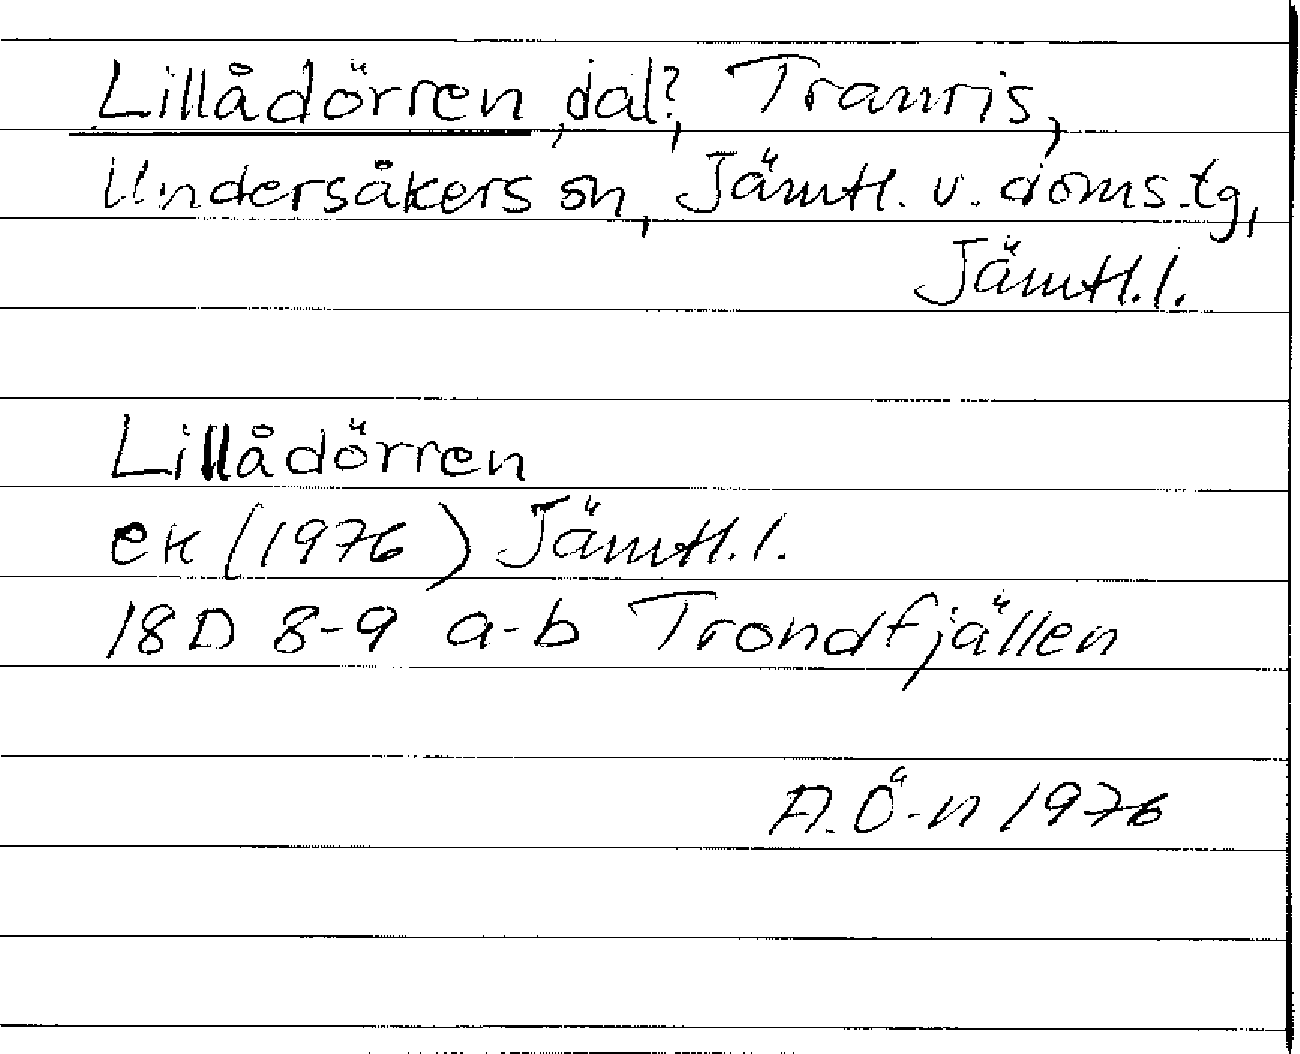 Lillådörren, dal?, Tranris,
Undersåkers sn, Jämtl. v. doms.tg,
Jämtl.l.
Lillådörren
ek (1976) Jämtl.l.
18D 8-9 a-b Trondfjällen
A.Ö-n 1976